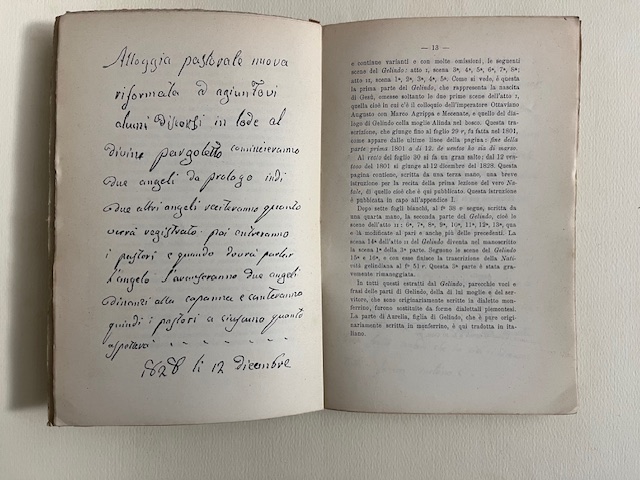 Alloggia pastorale nuova
riformata ed agiuntovi
aluni Discorsi in lode al
divino pargoletto comincieranno
due angeli da prologo indi
due altri angeli reciteranno quanto
verrà registrato poi entreranno
i pastori e quando dovrà parlar
L'angelo l'avanseranno due angeli
dinanzi alla capanna e canteranno
quindi i pastori a ciascuno quanto
aspettarà
1828 li 12 dicembre
— 13 —
e continue varianti e con molte omissioni, le seguenti
scene del Gelindo: atto I, scene 3ª, 4ª, 5ª, 6ª, 7ª, 8ª;
atto II, scene 1ª, 2ª, 3ª, 4ª, 5ª. Come si vede, è questa
la prima parte del Gelindo, che rappresenta la nascita
di Gesù, omesse soltanto le due prime scene dell'atto I,
quella cioè in cui c'è il colloquio dell'imperatore Ottaviano
Augusto con Marco Agrippa e Mecenate, e quella del dia-
logo di Gelindo colla moglie Alinda nel bosco. Questa tra-
scrizione, che giunge fino al foglio 29 r, fu fatta nel 1801,
come appare dalle ultime linee della pagina: fine della
parte prima 1801 a di 12. de ventos ho sia di marzo.
Al recto del foglio 30 si fa un gran salto: dal 12 ven-
toso del 1801 si giunge al 12 dicembre del 1828. Questa
pagina contiene, scritta da una terza mano, una breve
istruzione per la recita della prima lezione del vero Na-
tale, di quello cioè che è qui pubblicato. Questa istruzione
è pubblicata in capo all'appendice I.
Dopo sette fogli bianchi, al fº 38 e segue, scritta da
una quarta mano, la seconda parte del Gelindo, cioè le scene
dell'atto II: 6ª, 7ª, 8ª, 9ª, 10ª, 11ª, 12ª, 13ª, qua
e là modificate al pari e anche più delle precedenti. La
scena 14ª dell'atto II del Gelindo diventa nel manoscritto
la scena 1ª della 3ª parte. Seguono le scene del Gelindo
15ª e 16ª, e con esse finisce la trascrizione della Nati-
vità gelindiana al fº 51 r. Questa 3ª parte è stata grave-
mente rimaneggiata.
In tutti questi estratti dal Gelindo, parecchie voci e
frasi delle parti di Gelindo, della di lui moglie e del ser-
vitore, che sono originariamente scritte in dialetto mon-
ferrino, furono sostituite da forme dialettali piemontesi.
La parte di Aurelia, figlia di Gelindo, che è pure origi-
nariamente scritta in monferrino, è qui tradotta in ita-
liano.